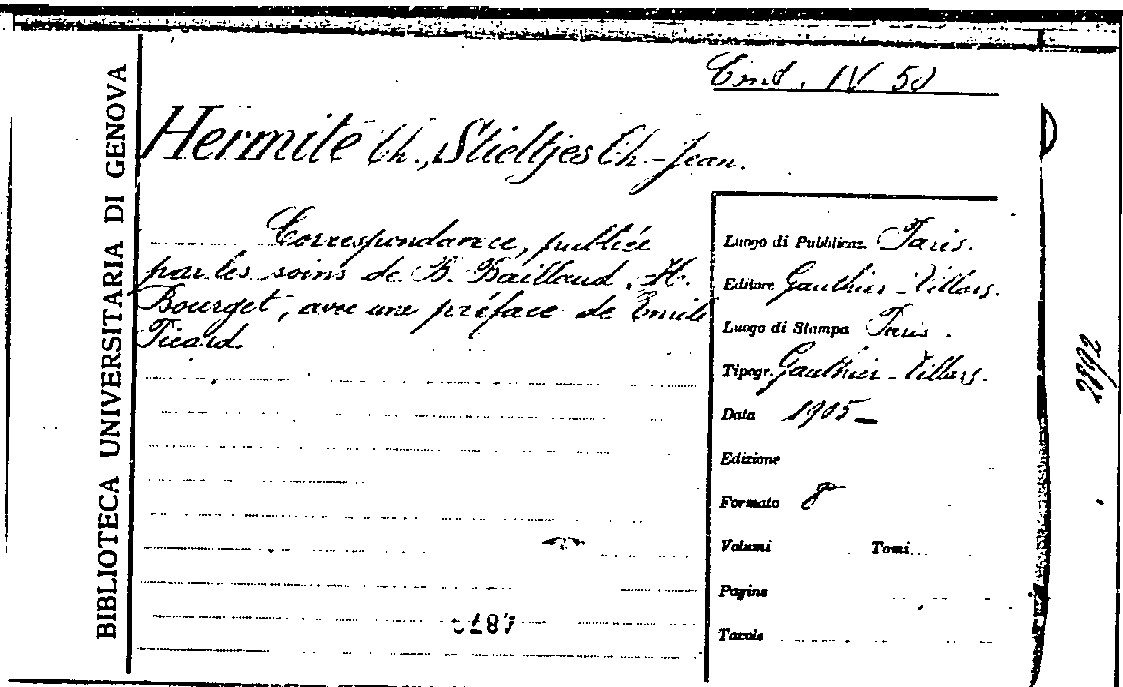 Cons. IV 50
BIBLIOTECA UNIVERSITARIA DI GENOVA
Hermite Ch., Stieltjes Ch.-Jean.
Correspondance, publiée
par les soins de B. Baillaud, H.
Bourget, avec une préface de Emile
Picard.
Luogo di Pubblicaz. Paris.
Editore Gauthier-Villars.
Luogo di Stampa Paris.
Tipogr. Gauthier-Villars.
Data 1905-
Edizione
Formato 8º
Volumi Tomi
Pagine
Tavole